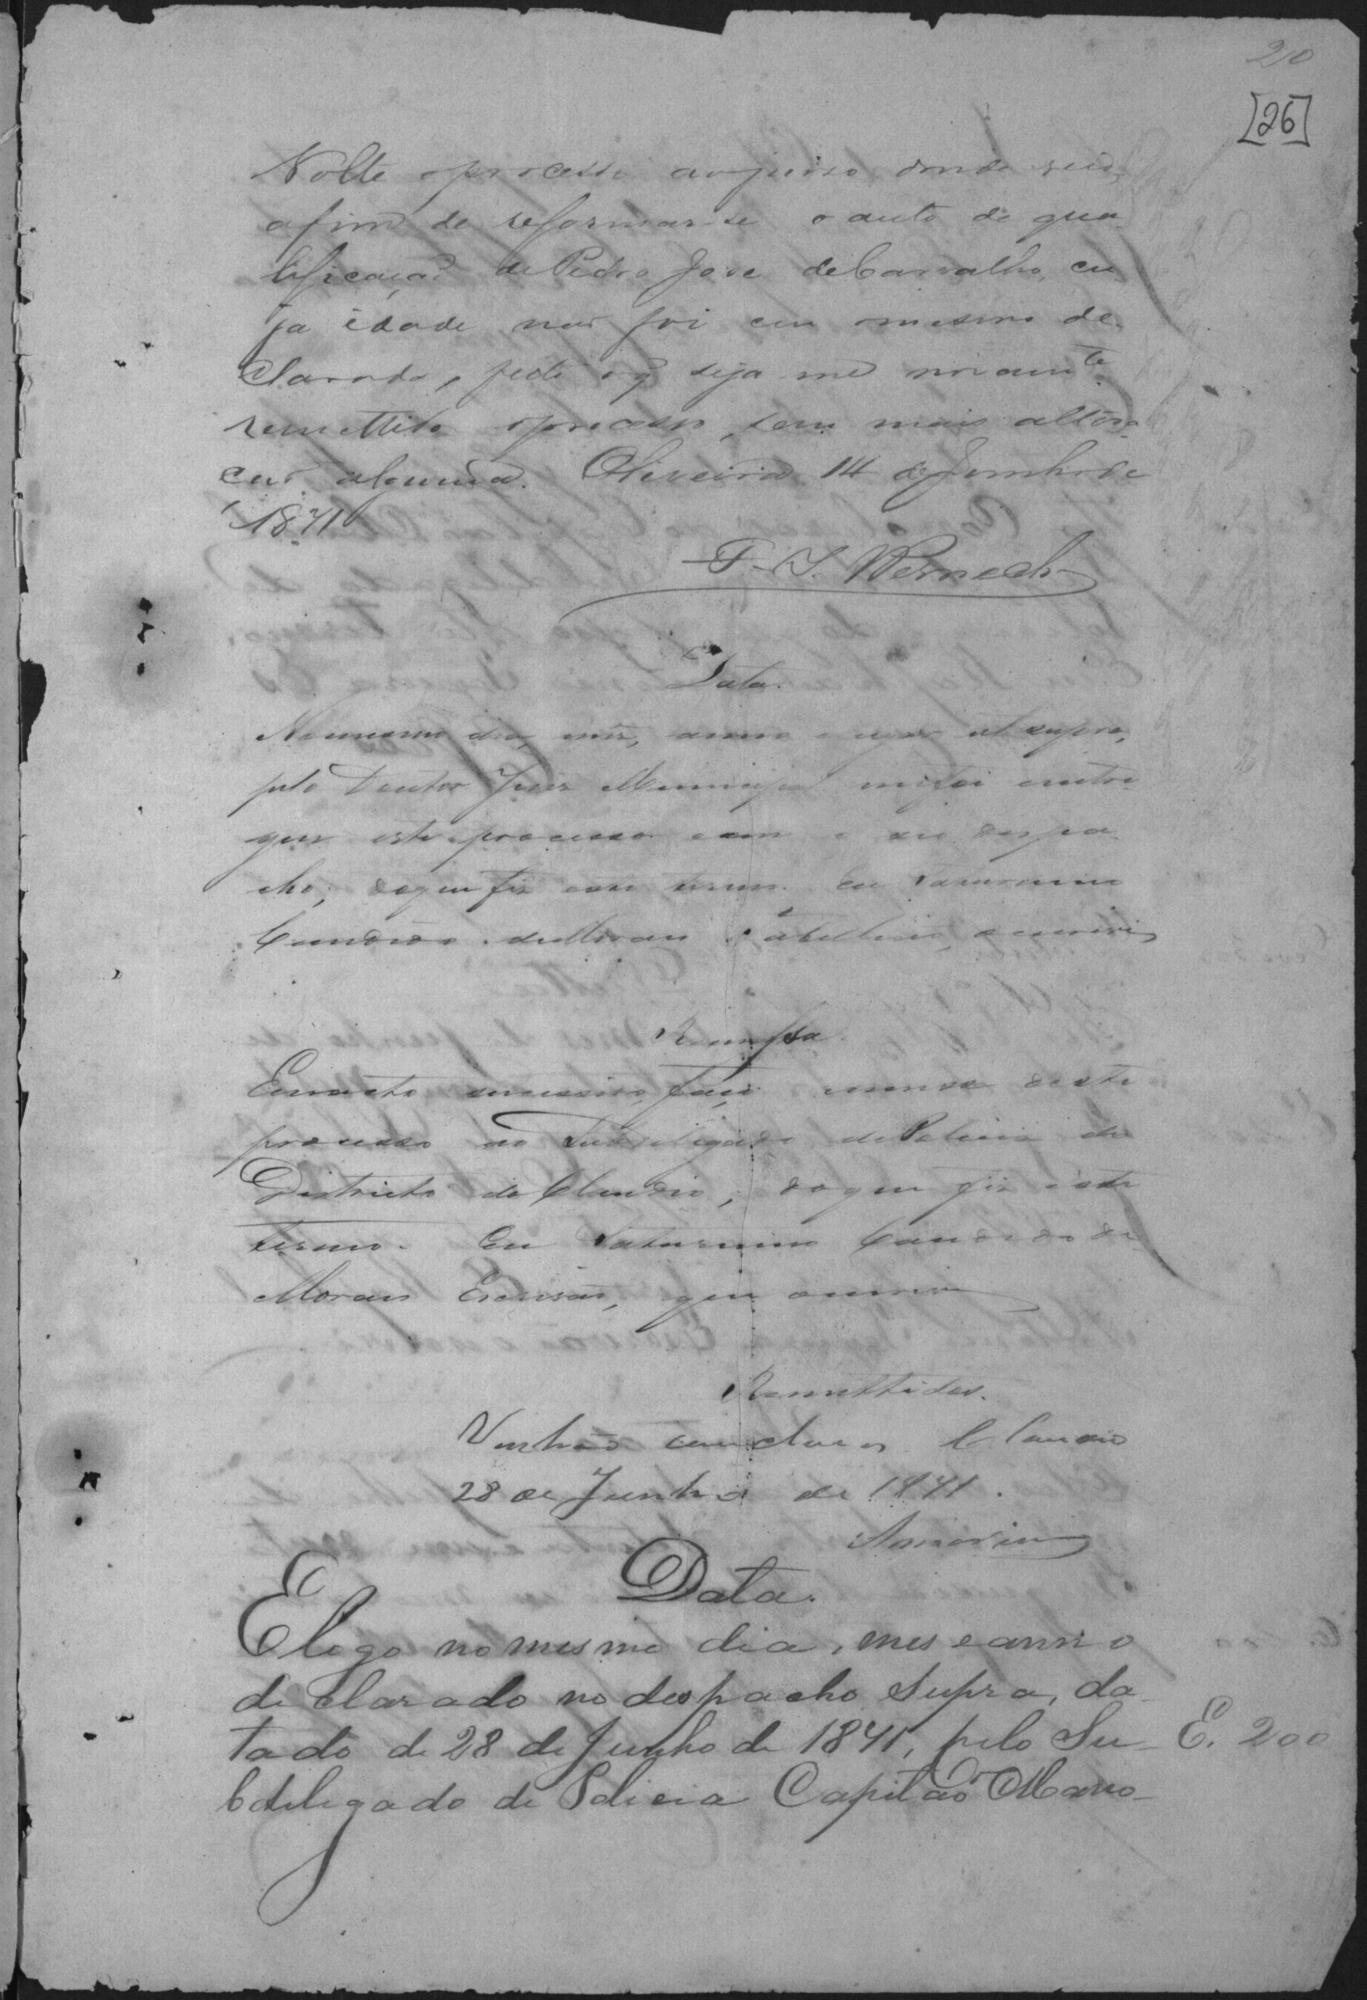 20
[26]
Volte o processo ao juiso donde veio,
afim de reformar-se o auto de qua
lificaçaõ de Pedro Jose de Carvalho, cu
ja idade naõ foi em o mesmo de
clarado, feito o q seja-me novamte
remettido o processo, sem mais altera
çaõ alguma. Oliveira 14 de Junho de
1871
F. J. Werneck
Data.
No mesmo dia, mez, anno e lugar ut supra,
pelo Doutor Juiz Municipal me foi entre
gue este processo com o seu despa
cho; do que fiz este termo. Eu Saturnino
Candido de Moraes Tabelliaõ, o escrevi
Remessa
Em acto sucessivo, faço remessa deste
processo ao Subdelegado de Policia do
Districto do Claudio, do que fiz este
termo. Eu Saturnino Candido de
Moraes Escrivaõ, que escrevi
Remettidos.
Venhaõ conclusos Claudio
28 de Junho de 1871.
Amorim
Data.
E logo no mesmo dia, mes e anno
declarado no despacho supra, da
tado de 28 de Junho de 1871, pelo Su
E. 200
bdelegado de Policia Capitaõ Mano